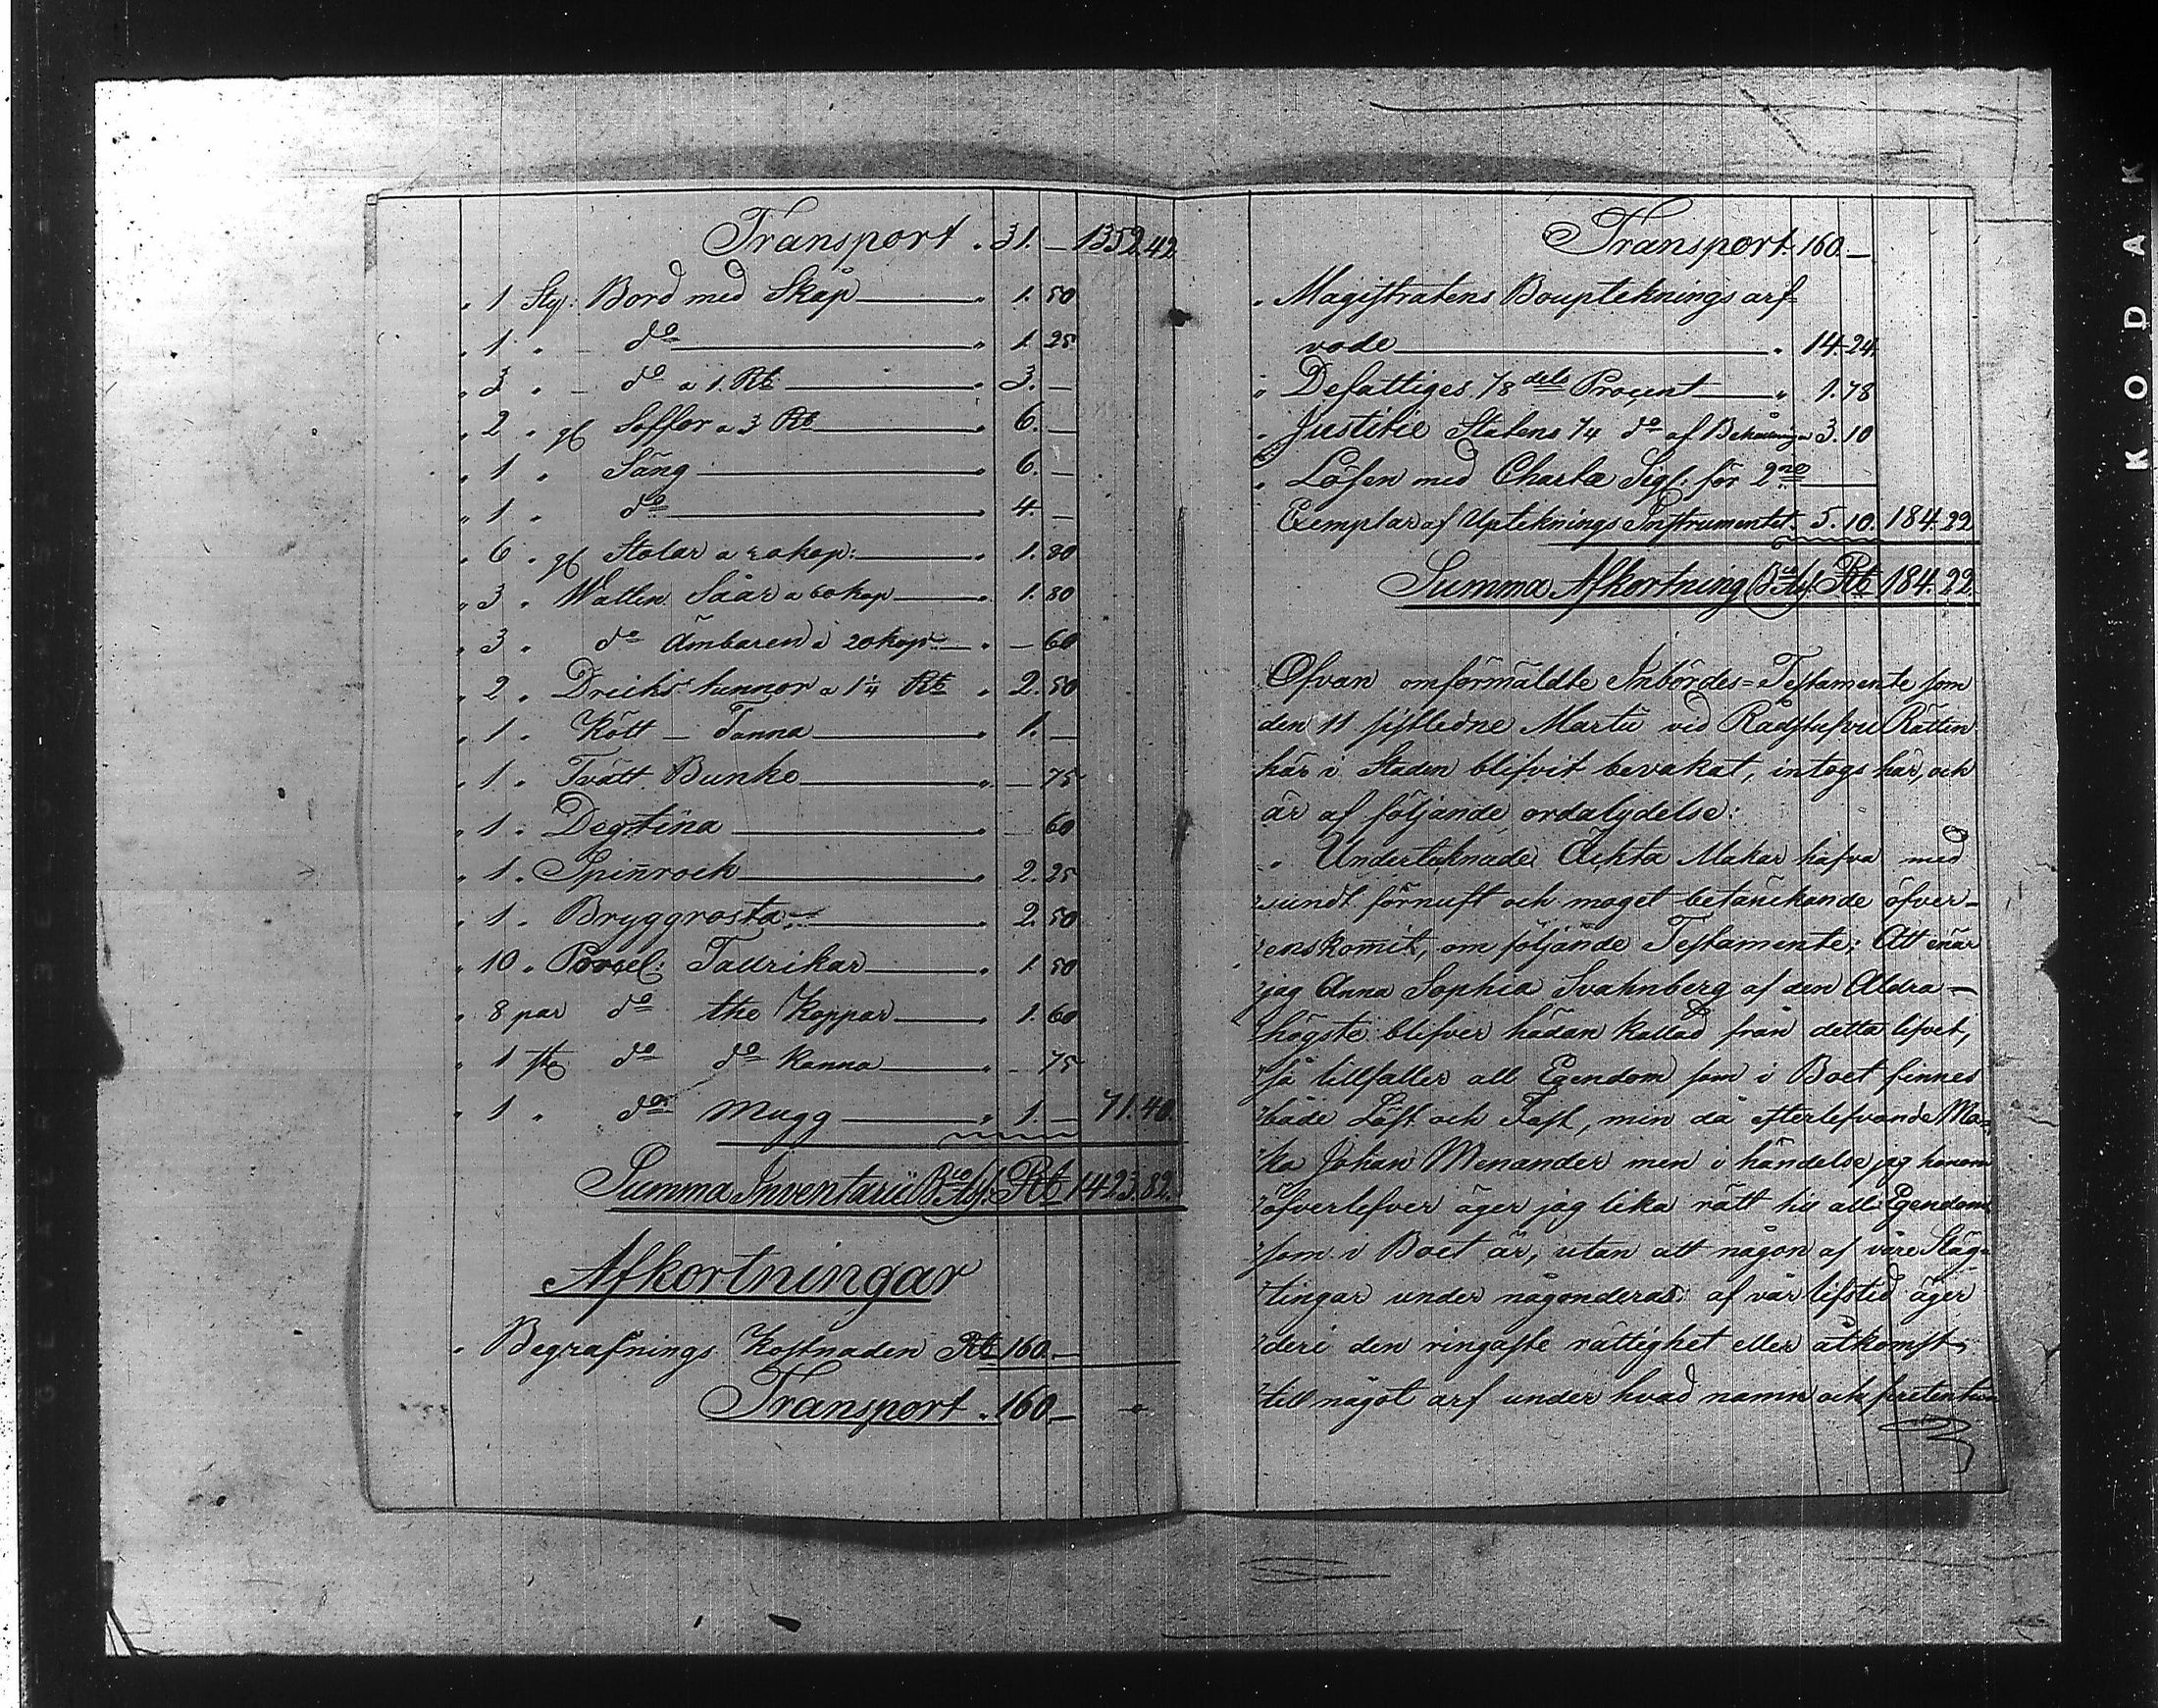 Transport . 31. — 1352.42
" 1 Sty: Bord med Skåp " 1. 50
" 1 " – do " 1. 25
" 3 " – do a 1. Rb " 3. —
" 2 " gl Soffor a 3 Rb " 6. —
" 1 " Säng " 6. —
" 1 " do " 4. —
" 6 " gl Stolar a 30 kop: " 1. 80
" 3 " Watten Såar a 60 kop " 1. 80
" 3 " do Ämbaren à 20 kop " — 60
" 2 " Dricks tunnor a 1 1/4 Rb " 2. 50
" 1 " Kött – Tunna " 1. —
" 1 " Tvätt Bunke " — 75
" 1 " Degtina " — 60
" 1 " Spin̄rock " 2. 25
" 1 " Bryggrosta " 2. 50
" 10 " Porcel: Tallrikar " 1. 50
" 8 par do the Koppar " 1. 60
" 1 st do do Kanna " — 75
" 1 " do Mugg " 1. — 71.40.
Summa Inventarii Bco Ass: Rb 1423.82.
Afkortningar
" Begrafnings Kostnaden Rb 160. —
Transport . 160 —
Transport. 160. —
" Magistratens Bouptekningsarf=
vode " 14.24.
" Defattiges 1/8 dels Procent " 1.78
" Justitie Statens 1/4 do af Behållning " 3.10
" Lösen med Charta Sigl: för 2ne
Exemplar af Uptecknings Instrumentet " 5.10. 184.22
Summa Afkortning Bco Ass Rb 184.22.
Ofvan omförmäldte Inbördes=Testamente som
den 11 sistledne Martii vid Rådstufvu Rätten
här i Staden blifvit bevakat, intogs här, och
är af följande ordalydelse:
" Undertecknade Äckta Makar hafva med
" sundt förnuft och moget betänckande öfver-
" enskom̄it, om följande Testamente: Att enär
" jag Anna Sophia Svahnberg af den Aldra-
" högste blifver hädan kallad från detta lifvet,
" så tillfaller all Egendom som i Boet finnes
" både Löst och Fast, min då efterlefvande Ma=
" ka Johan Menander men i händelse jag honom
" öfverlefver äger jag lika rätt till all Egendom
" som i Boet är, utan att någon af våre Släg=
" tingar under någonderas af vår lifstid äger
" deri den ringaste rättighet eller åtkomst
" till något arf under hvad namn och pretention
KODAK